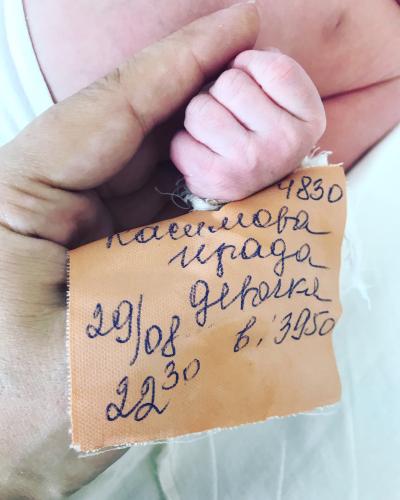 4830
Касимова
Ирада
девочка
29/08 в. 3950
22 30